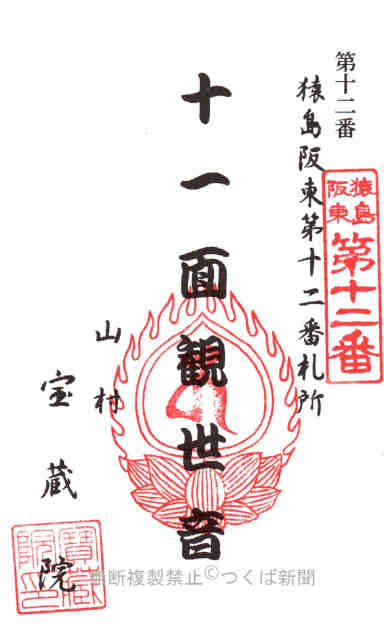 第十二番
猿島阪東第十二番札所
猿島
阪東
第十二番
十一面観世音
山村
宝蔵院
寶蔵
院印
無断複製禁止©つくば新聞